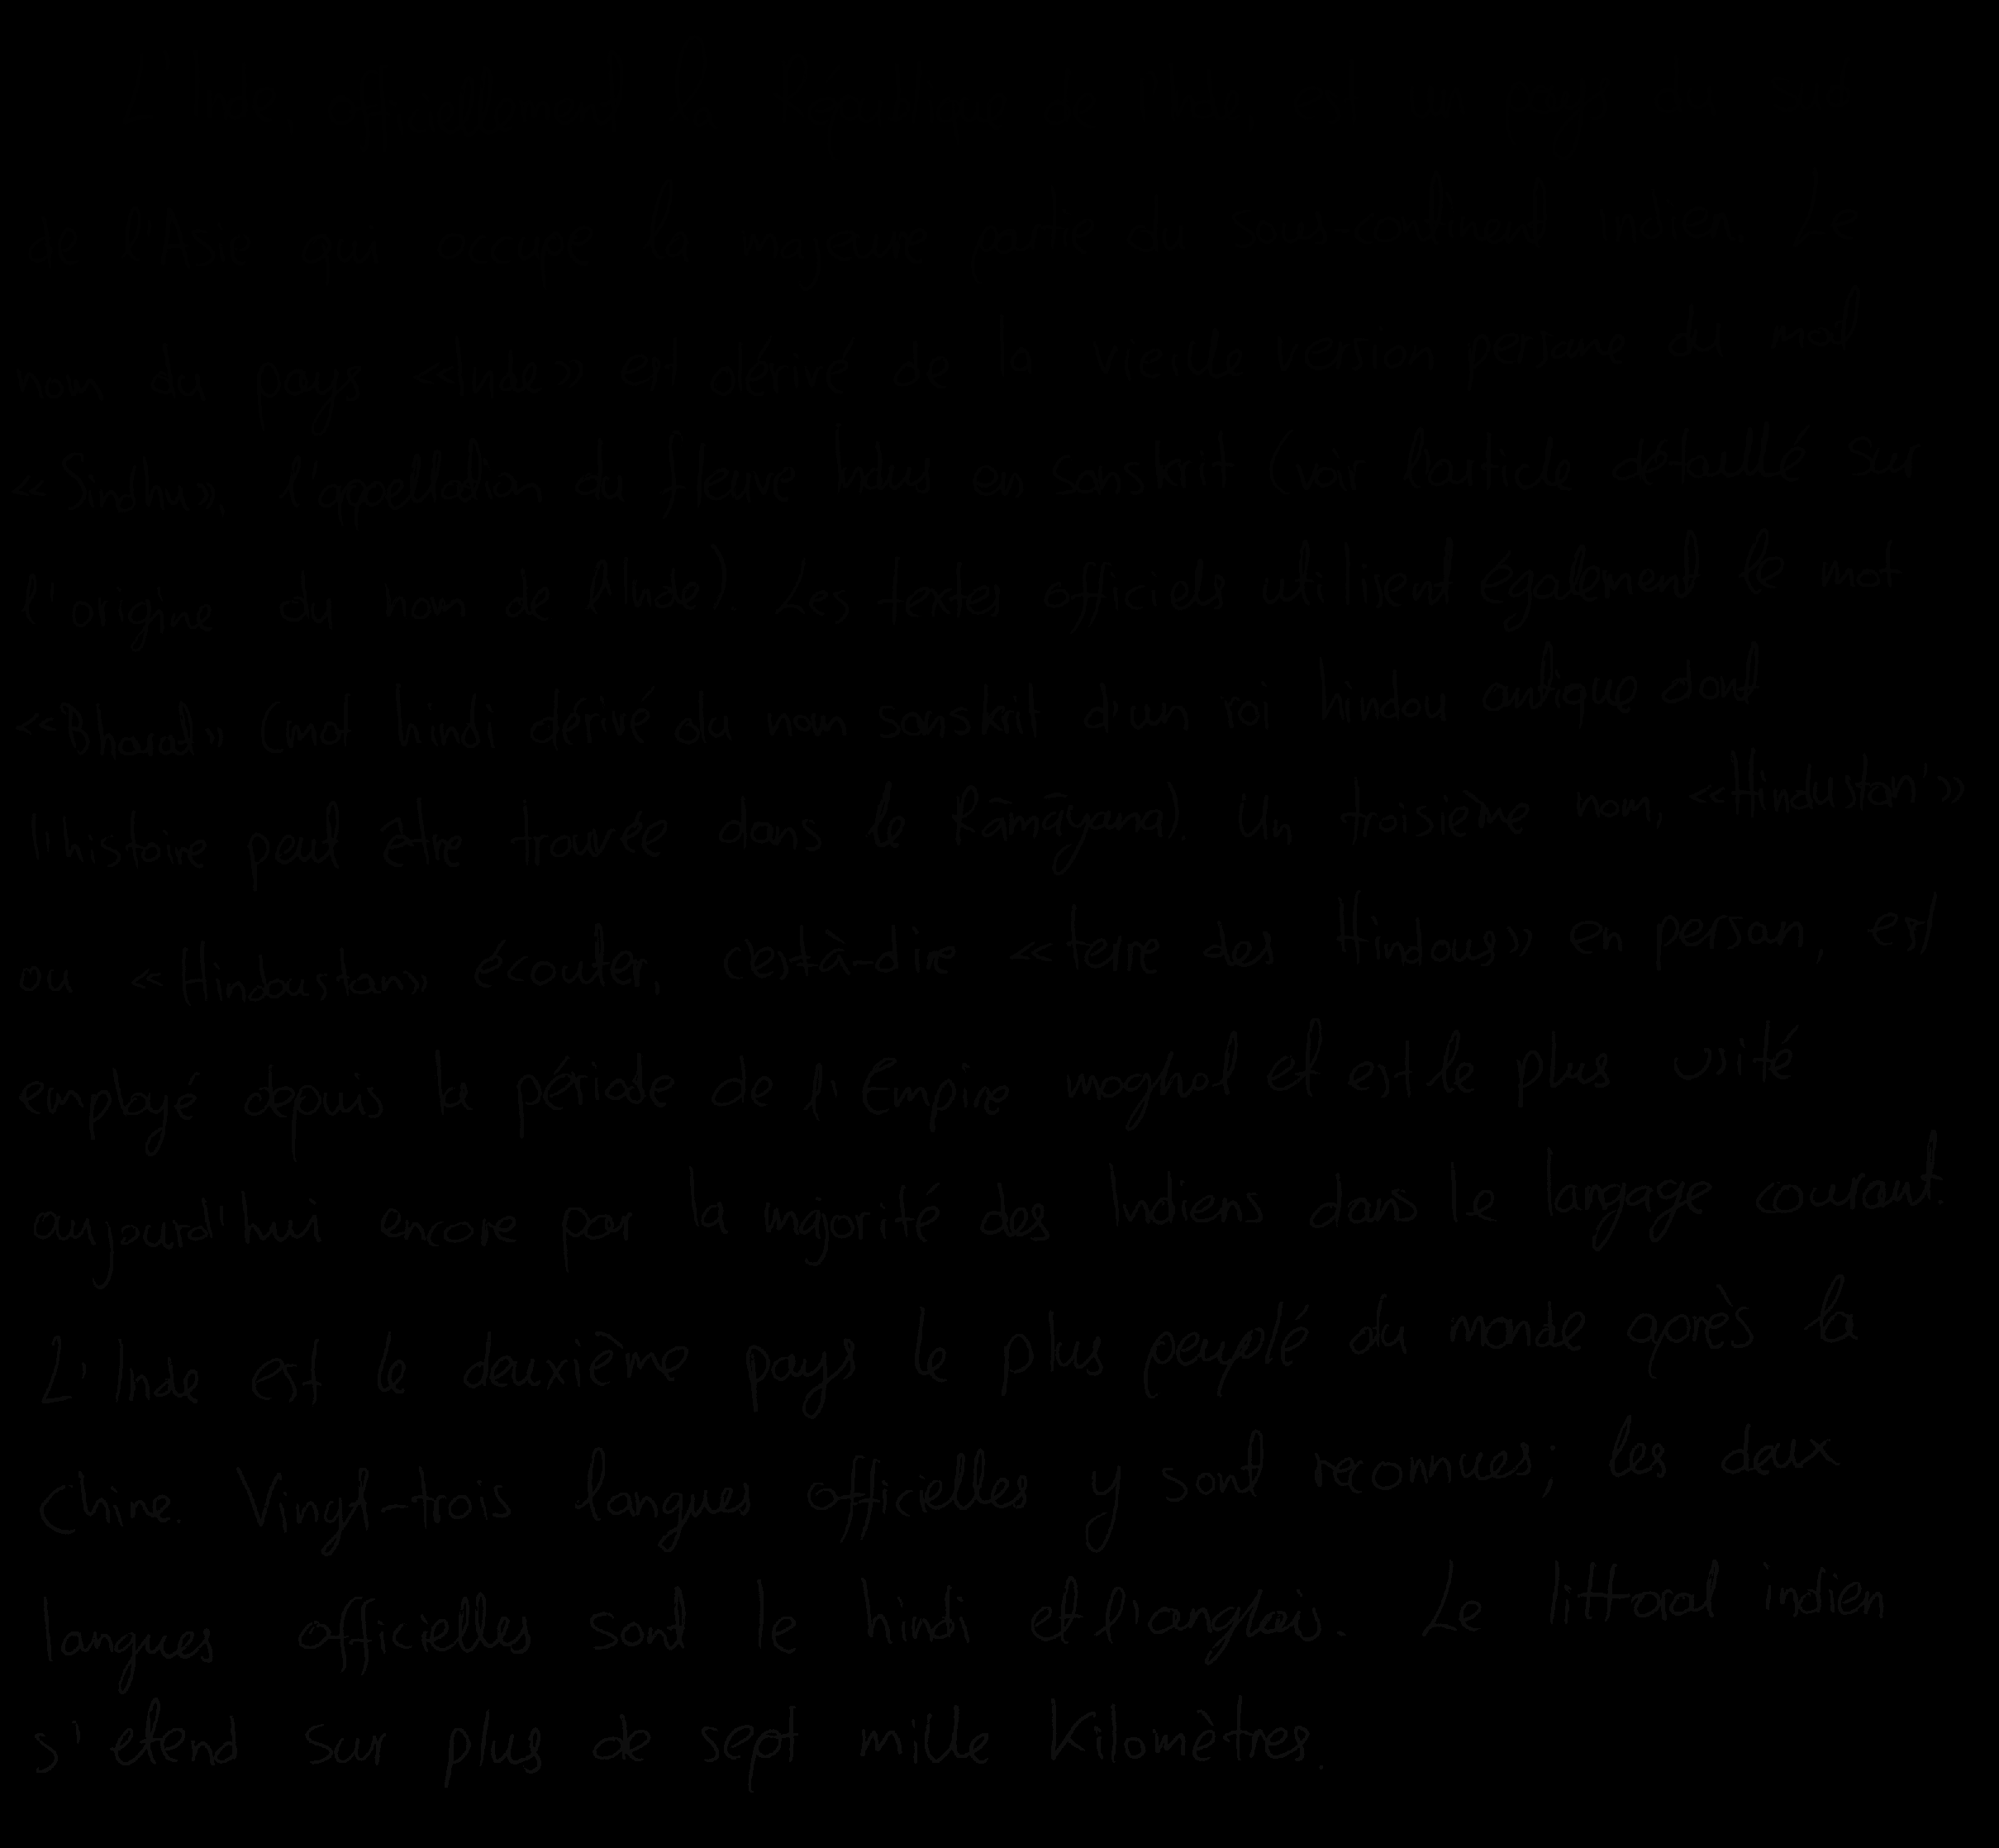 de l'Asie qui occupe la majeure partie du sous-continent indien. Le
nom du pays «Inde» est dérivé de la vieille version persane du mot
«Sindhu», l'appelladion du fleuve Indus en sanskrit (voir l'article détaillé sur
l'origine du nom de l'Inde). Les textes officiels utilisent également le mot
«Bharat» (mot hindi dérivé du nom sanskrit d'un roi hindou antique dont
l'histoire peut être trouvée dans le Rāmāyana). Un troisième nom, «Hindustan'»
ou «Hindoustan» écouter, c'est-à-dire «terre des Hindous» en persan, est
employé depuis la période de l'Empire moghol et est le plus usité
aujourd'hui encore par la majorité des Indiens dans le langage courant.
L'Inde est le deuxième pays le plus peuplé du monde après la
Chine. Vingt-trois langues officielles y sont reconnues; les deux
langues officielles sont le hindi et l'anglais. Le littoral indien
s'etend sur plus de sept mille kilomètres.